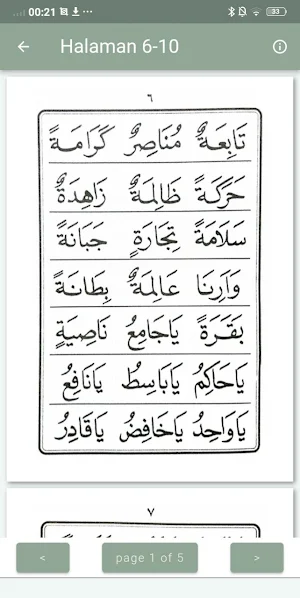 00:21 33
Halaman 6-10
٦
تَابِعَةٌ مُنَاصِرٌ كَرَامَةً
حَرَكَةً ظَالِمَةٌ زَاهِدَةٌ
سَلَامَةً تِجَارَةٍ جَبَانَةً
وَارِنَا عَالِمَةٌ بِطَانَةً
بَقَرَةً يَاجَامِعُ نَاصِيَةٍ
يَاحَاكِمُ يَابَاسِطُ يَانَافِعُ
يَاوَاحِدُ يَاخَافِضُ يَاقَادِرُ
٧
< page 1 of 5 >